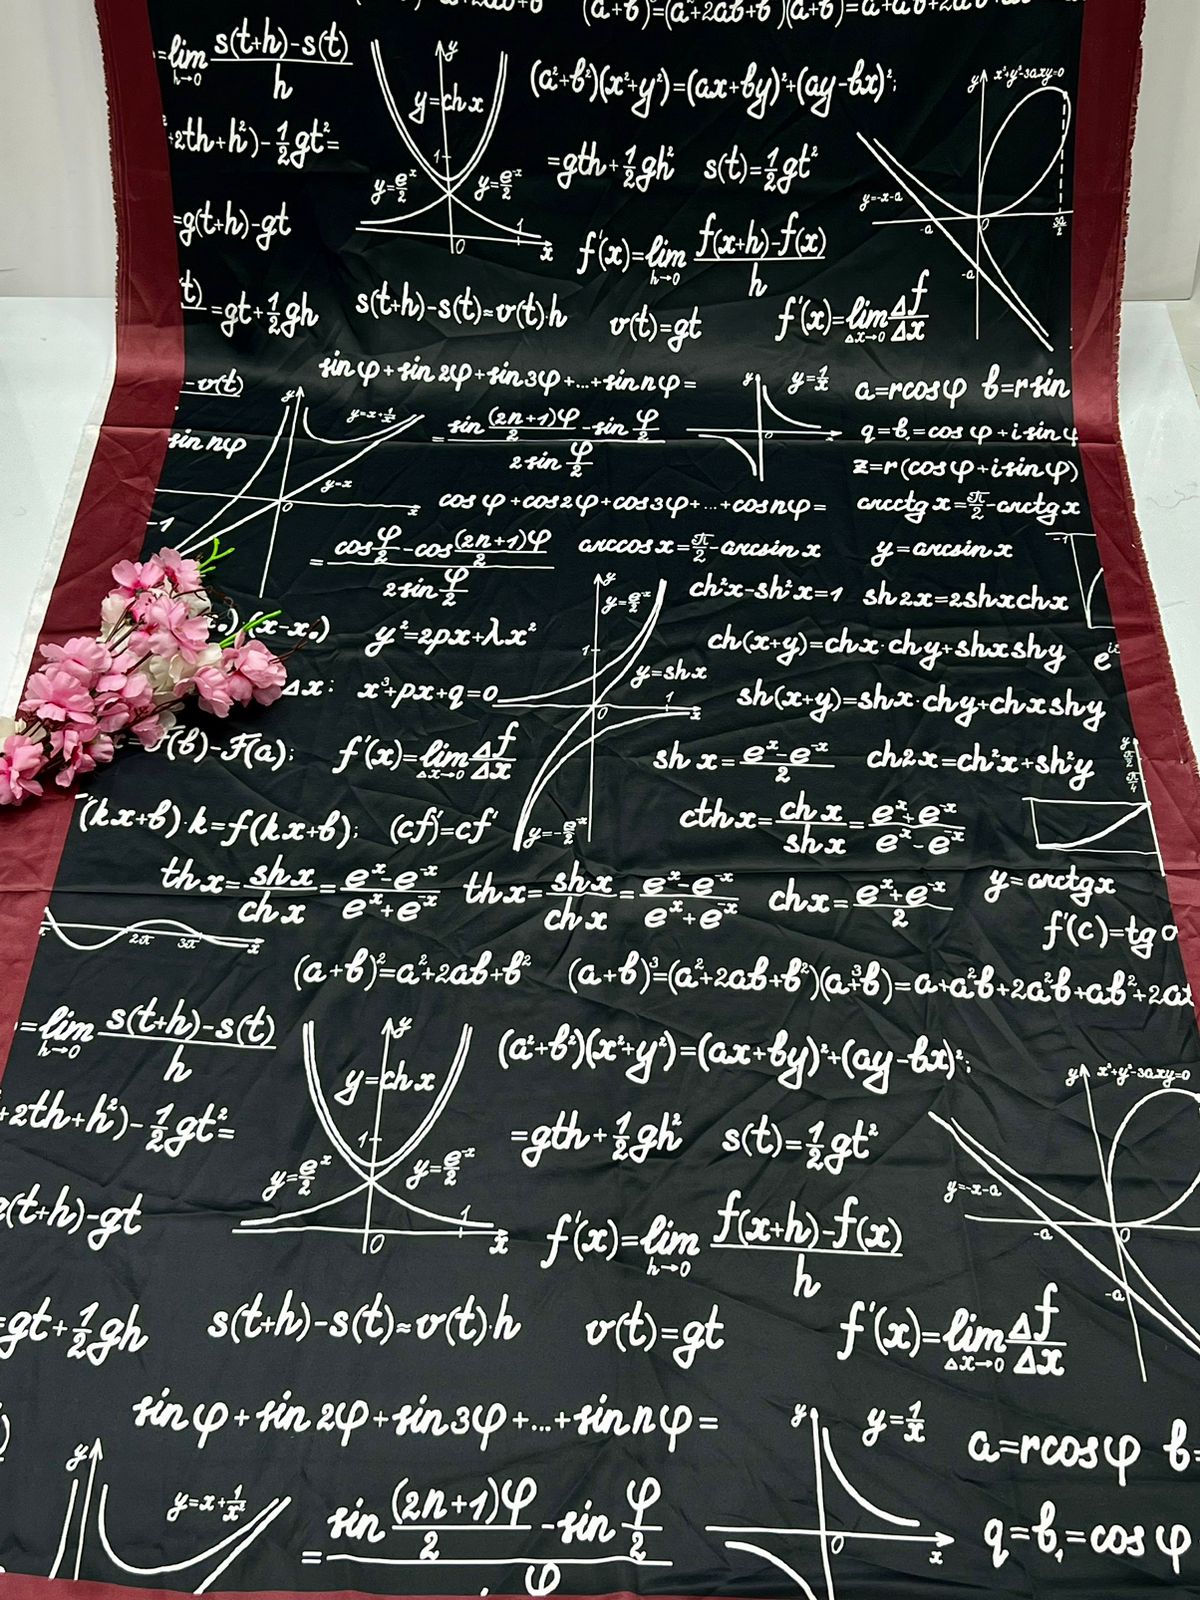 (a+b)³=(a²+2ab+b²)(a+b)=
=lim h→0 s(t+h)-s(t)/h
y
y=ch x
1
y=eˣ/2
y=e⁻ˣ/2
0 1 x
(a²+b²)(x²+y²)=(ax+by)²+(ay-bx)²;
y x³+y³-3axy=0
+2th+h²)-½gt²=
=gth+½gh² s(t)=½gt²
y=-x-a
-a 0 3a/2
-a
=g(t+h)-gt
f'(x)=lim h→0 f(x+h)-f(x)/h
t)=gt+½gh s(t+h)-s(t)≈v(t)·h v(t)=gt f'(x)=lim Δx→0 Δf/Δx
-v(t)
sin φ+sin 2φ+sin 3φ+...+sin nφ=
y y=1/x
0 x
a=rcosφ b=rsin
sin nφ
y y=x+1/x²
y=x
0 x
-1
=sin (2n+1)φ/2 -sin φ/2 / 2 sin φ/2
q=b₁=cos φ+i sin φ
z=r(cos φ+i sin φ)
cos φ+cos2φ+cos3φ+...+cosnφ= arcctg x=π/2-arctg x
=cos φ/2 -cos (2n+1)φ/2 / 2 sin φ/2
arccos x=π/2-arcsin x y=arcsin x
-1
ch²x-sh²x=1 sh 2x=2shxchx
(x-x₀) y²=2px+λx²
y y=eˣ/2
1
y=sh x
0 1 x
y=-e⁻ˣ/2
ch(x+y)=chx·chy+shxshy
Δx; x³+px+q=0
sh(x+y)=shx·chy+chxshy
F(b)-F(a); f'(x)=lim Δx→0 Δf/Δx
sh x=eˣ-e⁻ˣ/2 ch2x=ch²x+sh²y
y π/2 π/4
(kx+b)·k=f(kx+b); (cf)'=cf'
cth x=ch x/sh x=eˣ+e⁻ˣ/eˣ-e⁻ˣ
th x=sh x/ch x=eˣ-e⁻ˣ/eˣ+e⁻ˣ th x=sh x/ch x=eˣ-e⁻ˣ/eˣ+e⁻ˣ ch x=eˣ+e⁻ˣ/2
y=arctgx
2π 3π x
f'(c)=tg
(a+b)²=a²+2ab+b² (a+b)³=(a²+2ab+b²)(a+b)=a³+a²b+2a²b+ab²+2a
=lim h→0 s(t+h)-s(t)/h
y
y=ch x
1
y=eˣ/2
y=e⁻ˣ/2
0 1 x
(a²+b²)(x²+y²)=(ax+by)²+(ay-bx)²;
y x³+y³-3axy=0
+2th+h²)-½gt²=
=gth+½gh² s(t)=½gt²
y=-x-a
-a 0
-a
(t+h)-gt
f'(x)=lim h→0 f(x+h)-f(x)/h
gt+½gh s(t+h)-s(t)≈v(t)·h v(t)=gt f'(x)=lim Δx→0 Δf/Δx
sin φ+sin 2φ+sin 3φ+...+sin nφ=
y y=1/x
0 x
a=rcosφ b=
y y=x+1/x²
=sin (2n+1)φ/2 -sin φ/2
φ
q=b₁=cos φ